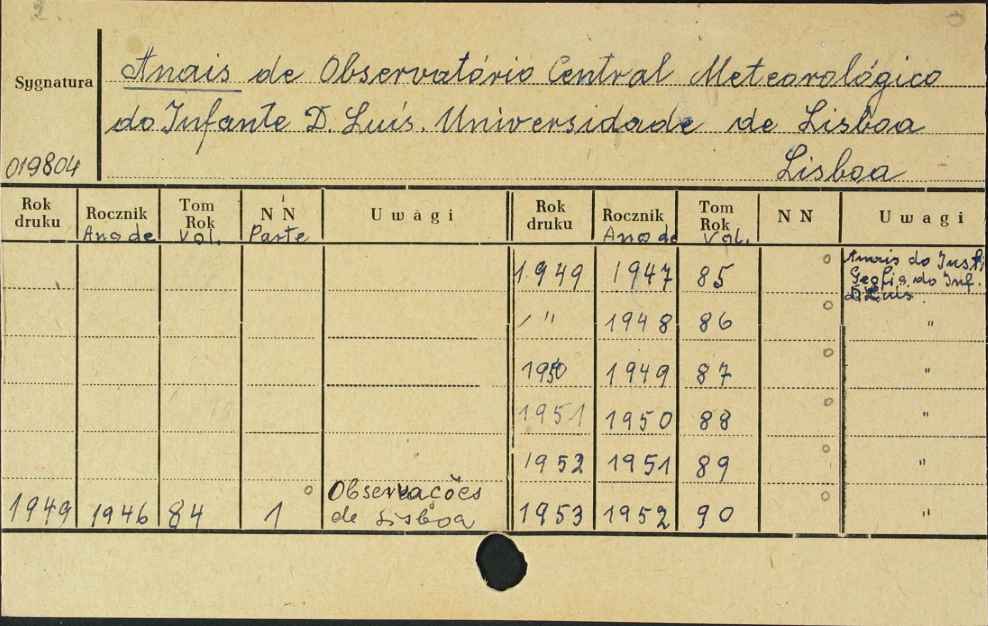 2.
Sygnatura
Anais de Observatório Central Meteorológico
do Infante D. Luís. Universidade de Lisboa
019804 Lisboa
Rok druku Rocznik Tom Rok NN Uwagi Rok druku Rocznik Tom Rok NN Uwagi
Ano de Vol. Parte Ano de Vol.
1949 1947 85 Anais do Inst.
Geofis. do Inf.
D. Luís
" 1948 86 "
1950 1949 87 "
1951 1950 88 "
1952 1951 89 "
1949 1946 84 1 Observações
de Lisboa 1953 1952 90 "